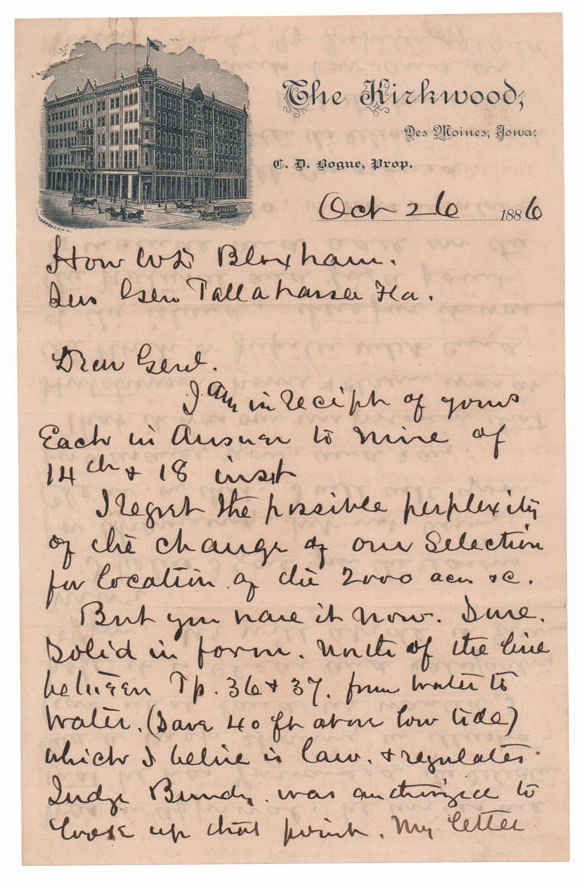 The Kirkwood,
Des Moines, Iowa.
C. D. Bogue, Prop.
Oct 26 1886
Hon W D Bloxham.
Sur Genl Tallahassee Fla.
Dear Genl.
I am in receipt of yours
Each in Answer to mine of
14th & 18 inst
I regret the possible perplexity
of the change of our Selection
for location of the 2000 acres &c.
But you have it now. Sure.
Solid in form. North of the line
between Tp. 36 & 37. from water to
water. (Save 40 ft above low tide)
which I believe is law. & regulates.
Judge Bundy was authorized to
look up that point. My letter